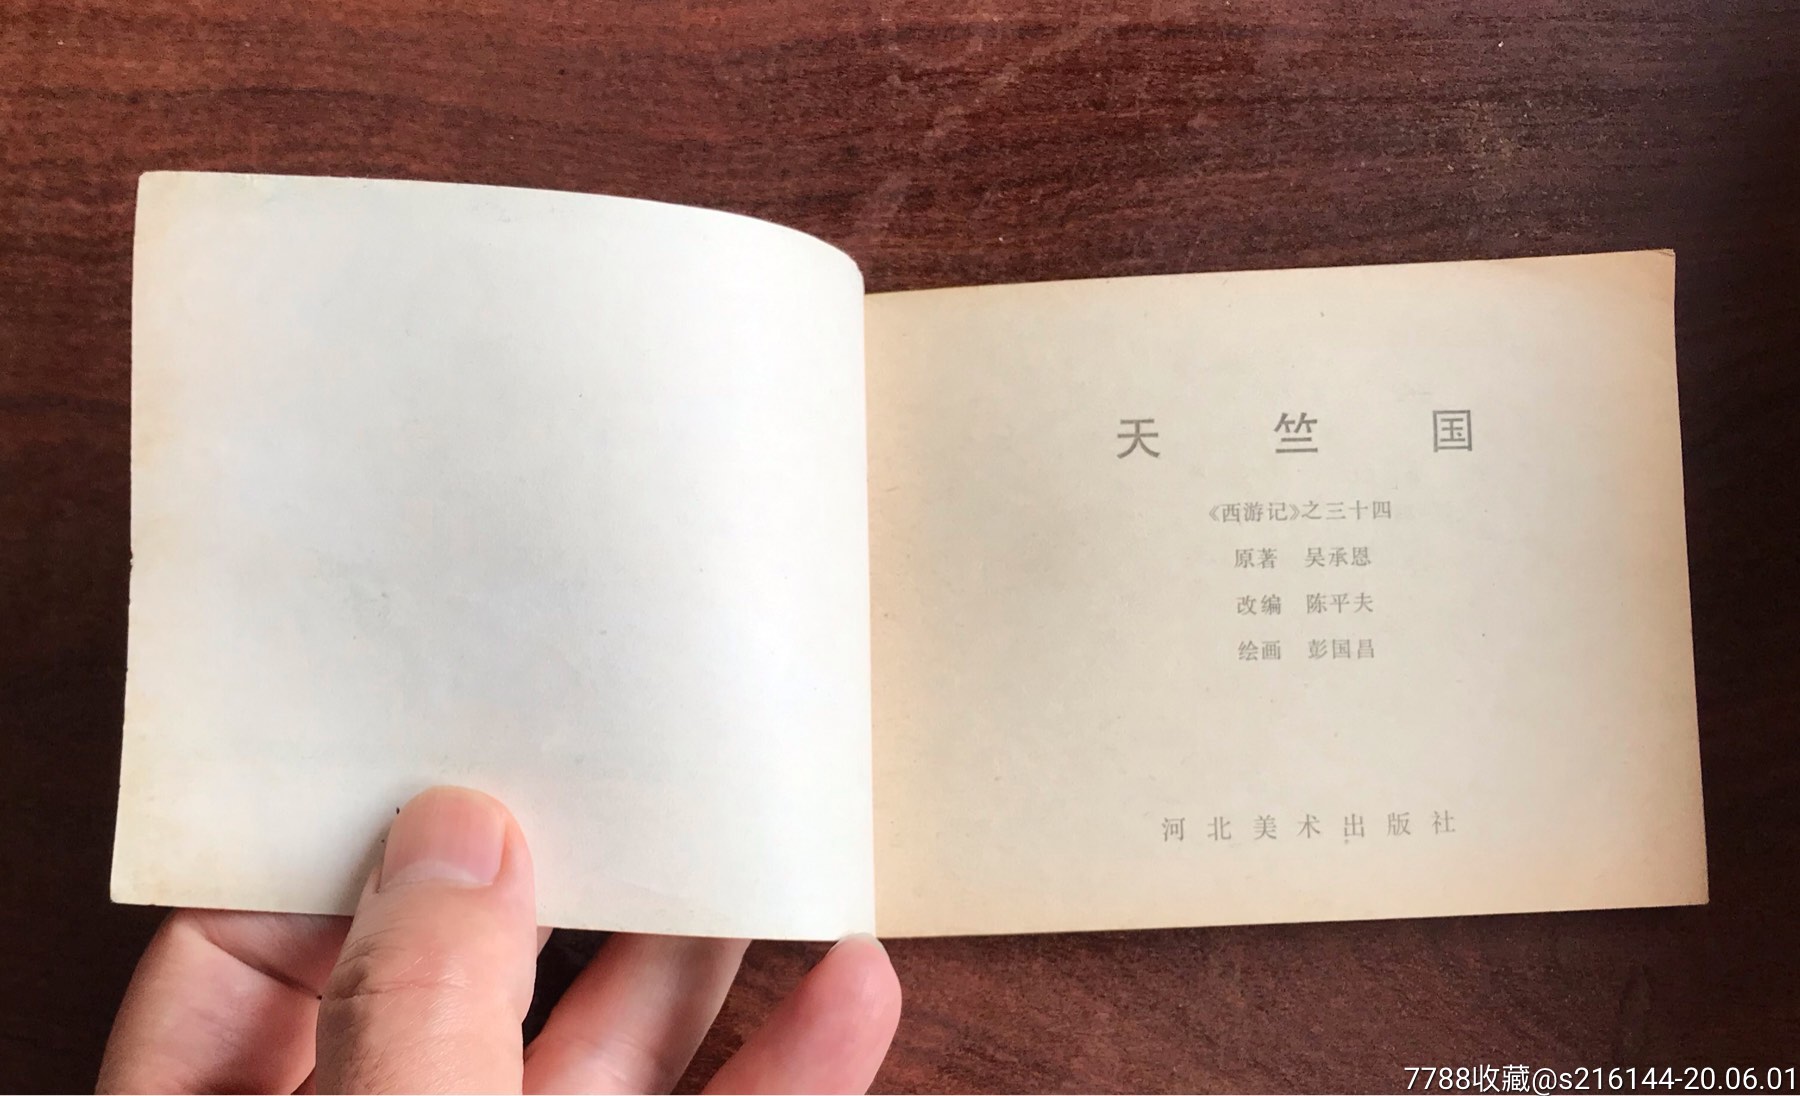 天竺国
《西游记》之三十四
原著 吴承恩
改编 陈平夫
绘画 彭国昌
河北美术出版社
7788收藏@s216144-20.06.01